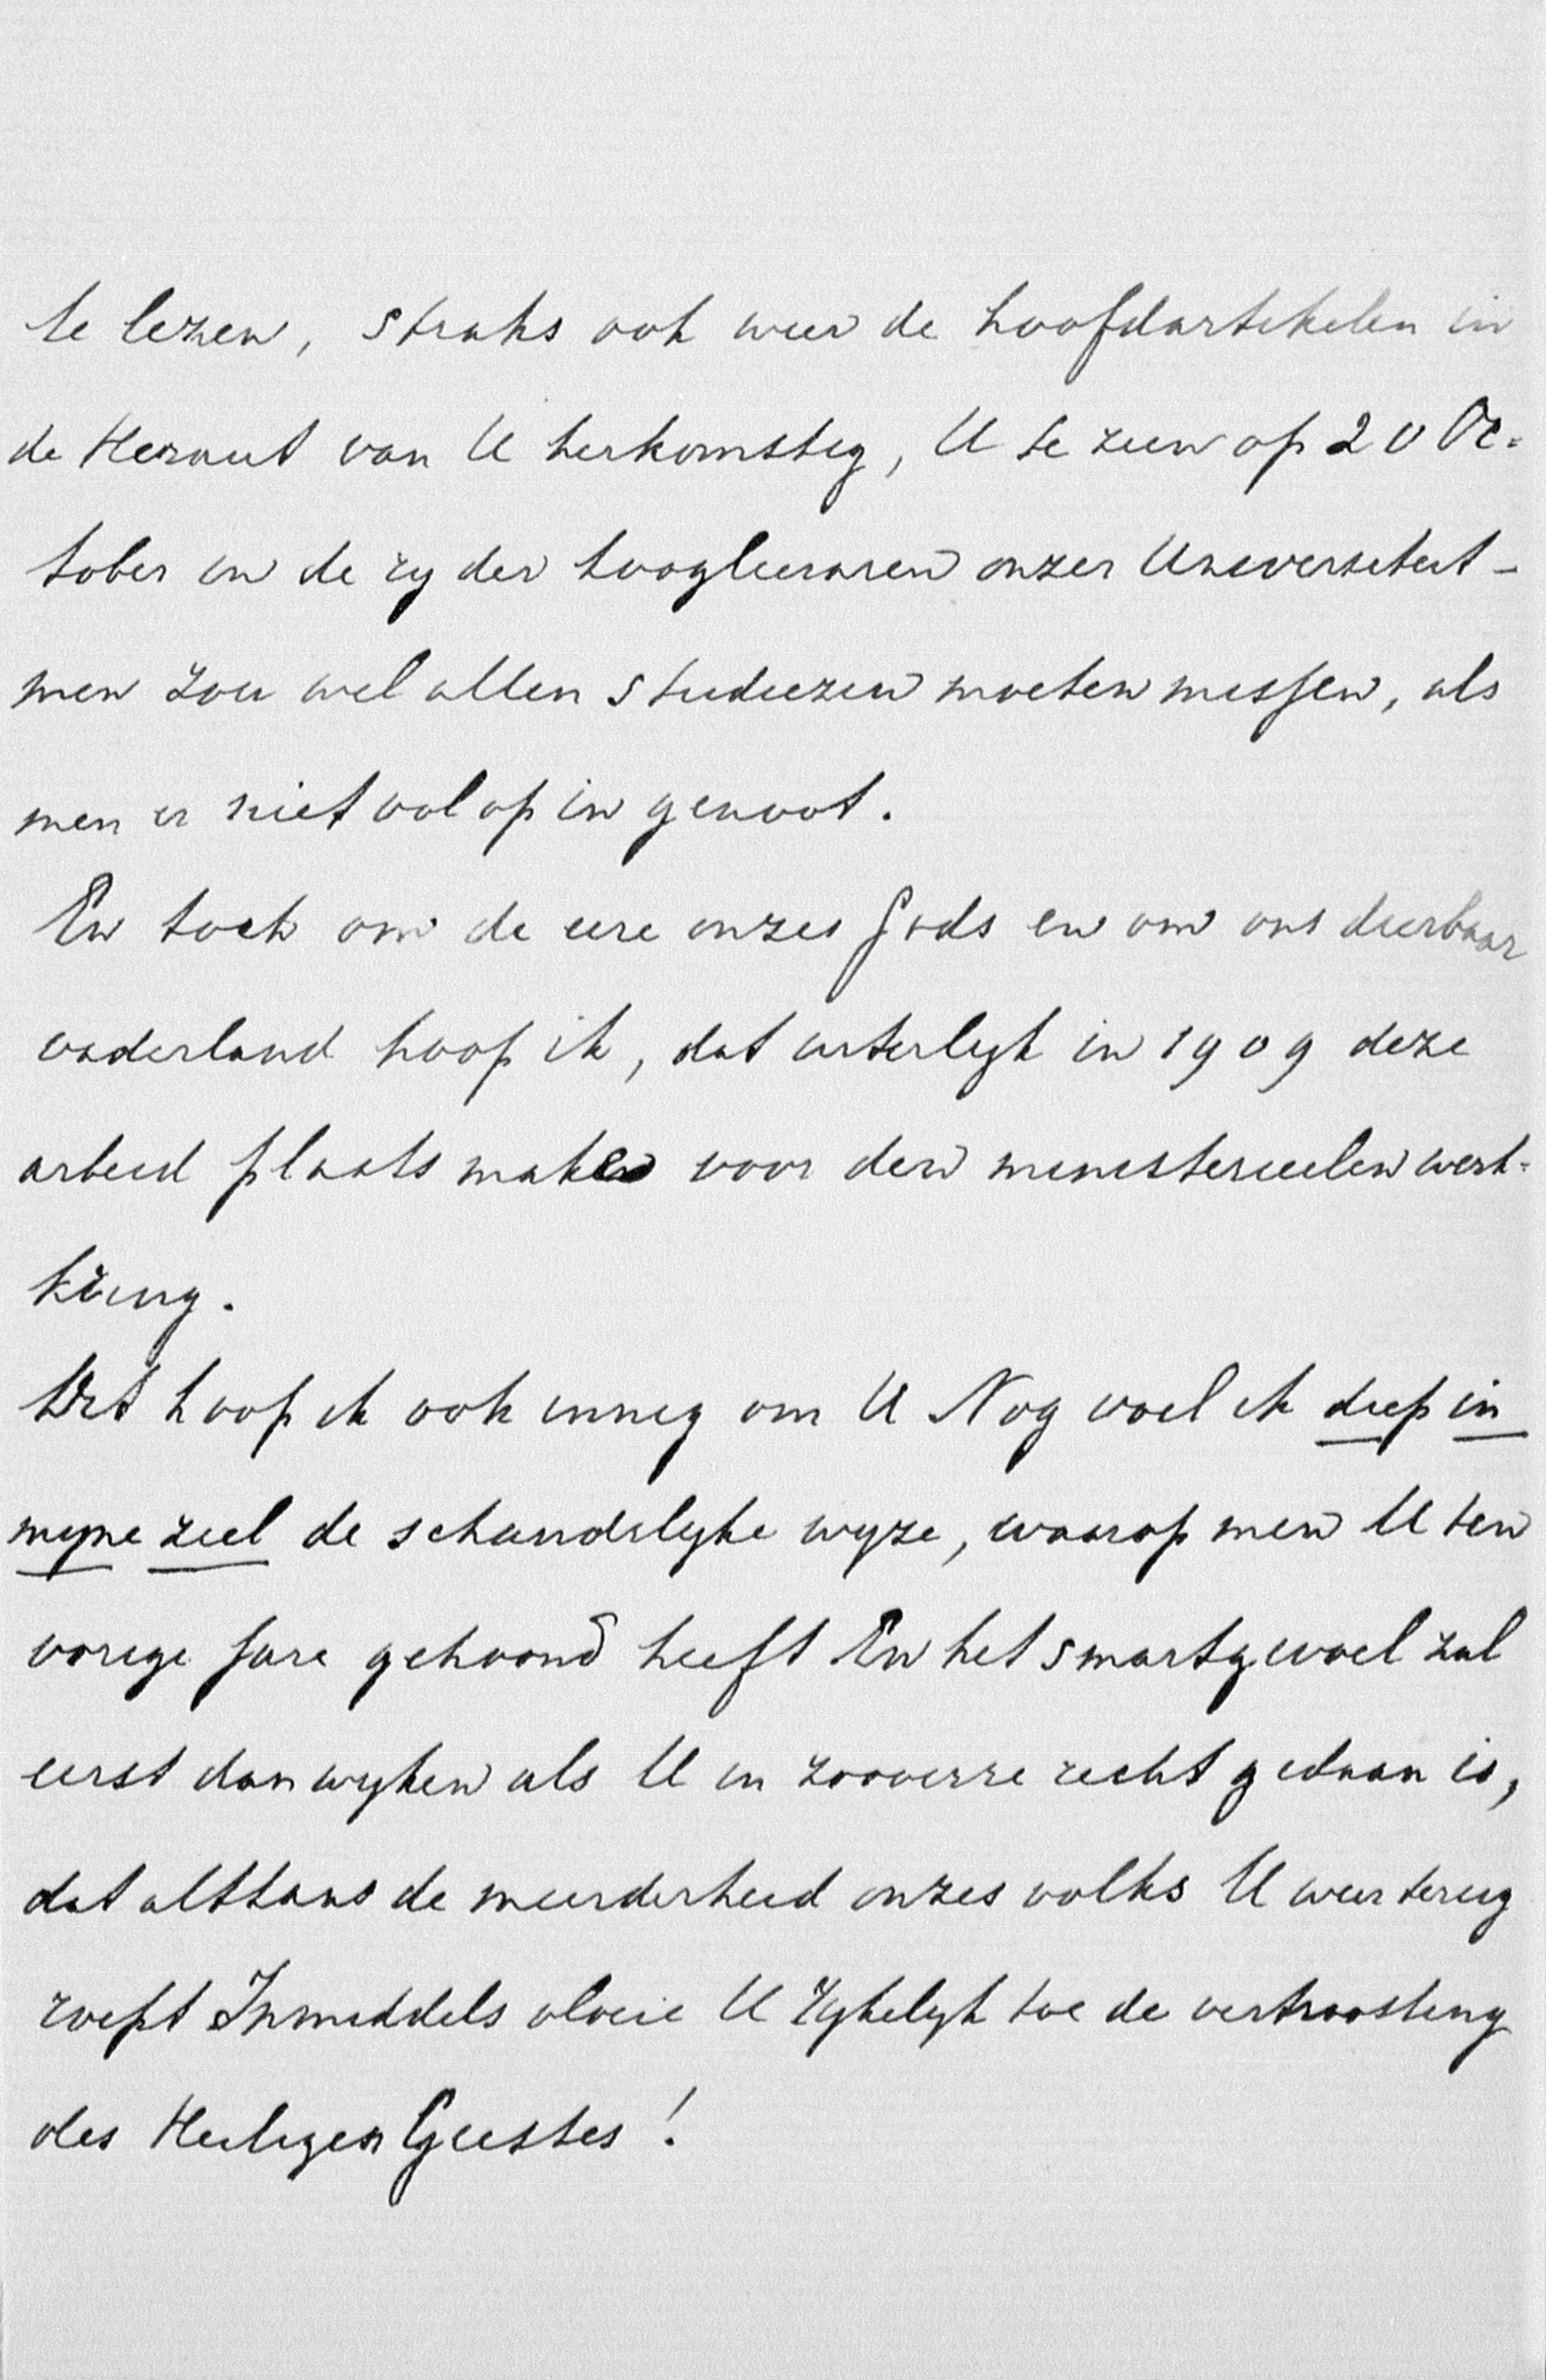 te lezen, straks ook weer de hoofdartikelen in
de Heraut van U herkomstig, U te zien op 20 Oc=
tober in de rij der hoogleeraren onzer Universiteit –
men zou wel allen studiezin moeten missen, als
men er niet volop in genoot.
En toch om de eere onzes Gods en om ons dierbaar
vaderland hoop ik, dat uiterlijk in 1909 deze
arbeid plaats make voor den ministerieelen werk=
kring.
Dit hoop ik ook innig om U Nog voel ik diep in
mijne ziel de schandelijke wijze, waarop men U ten
vorige jare gehoond heeft En het smartgevoel zal
eerst dan wijken als U in zooverre recht gedaan is,
dat althans de meerderheid onzes volks U weer terug
roept Inmiddels vloeie U rijkelijk toe de vertroosting
des Heiligen Geestes!